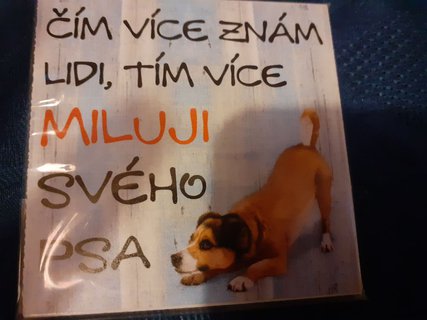 ČÍM VÍCE ZNÁM
LIDI, TÍM VÍCE
MILUJI
SVÉHO
PSA